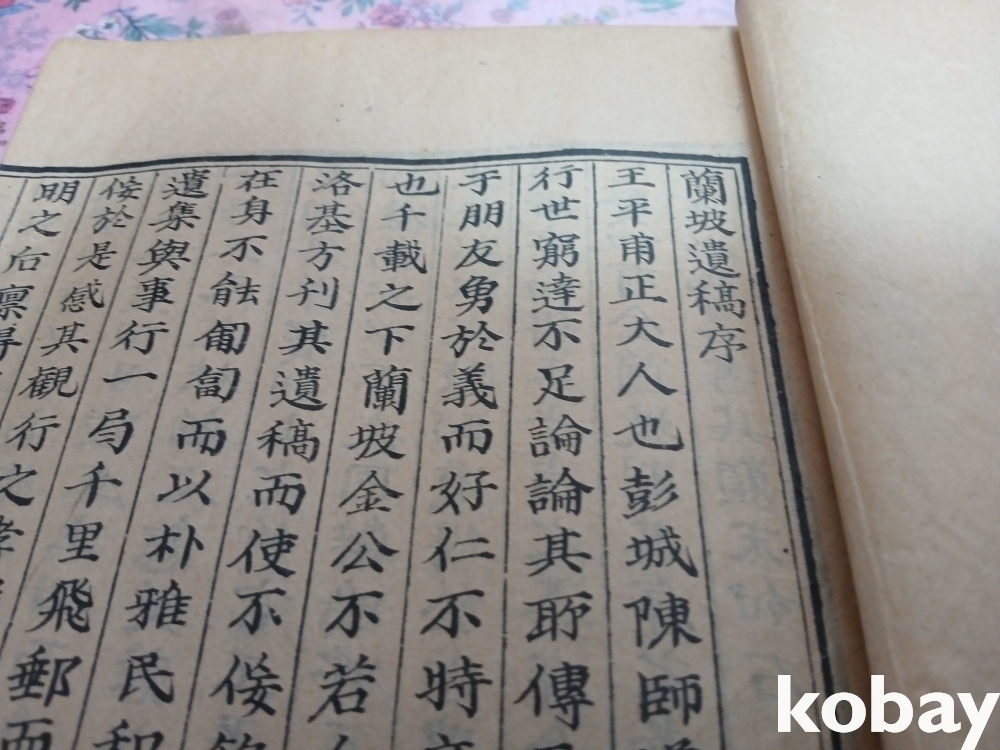 蘭坡遺稿序
王平甫正大人也彭城陳師
行世窮達不足論論其所傳
于朋友勇於義而好仁不特
也千載之下蘭坡金公不若
洛基方刊其遺稿而使不佞
在身不能匍匐而以朴雅民
遺集與事行一局千里飛郵
佞於是感其觀行之
明之后
kobay